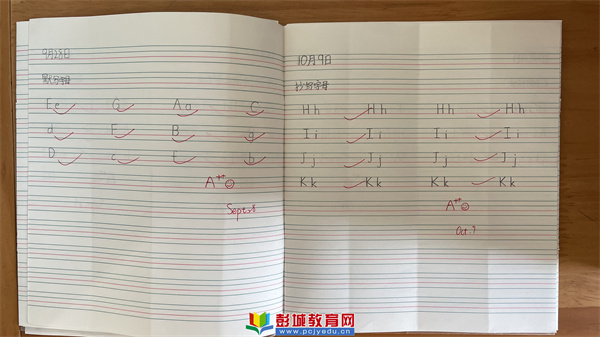 9月28日
默写字母
Ee G Aa C
d F B g
D c t b
A++
Sept.28
10月9日
抄写字母
Hh Hh Hh Hh
Ii Ii Ii Ii
Jj Jj Jj Jj
Kk Kk Kk Kk
A++
Oct.9
彭城教育网
www.pcjyedu.cn